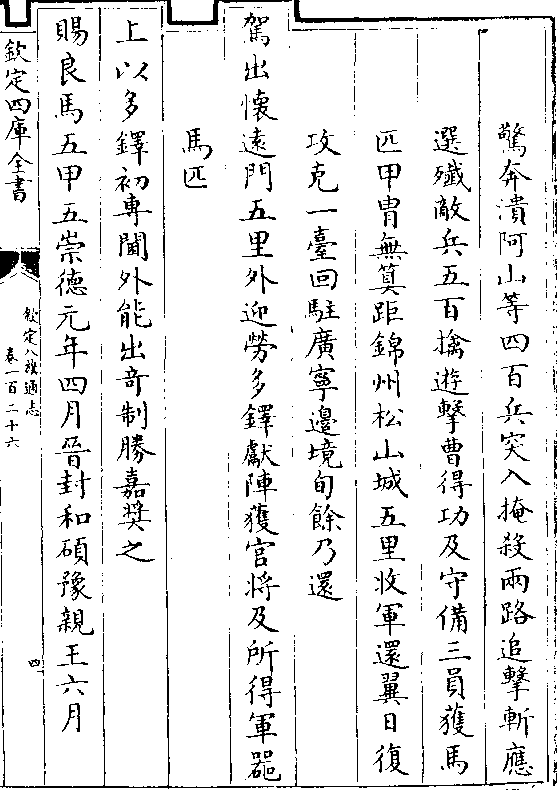 驚奔潰阿山等四百兵突入掩殺兩路追擊斬應
選殲敵兵五百擒遊擊曹得功及守備三員獲馬
匹甲胄無算距錦州松山城五里收軍還翼日復
攻克一臺回駐廣寧邊境旬餘乃還
駕出懷遠門五里外迎勞多鐸獻陣獲官將及所得軍器
馬匹
上以多鐸初專閫外能出奇制勝嘉奬之
賜良馬五甲五崇德元年四月晉封和碩豫親王六月
欽定四庫全書
欽定八旗通志
卷一百二十六
四